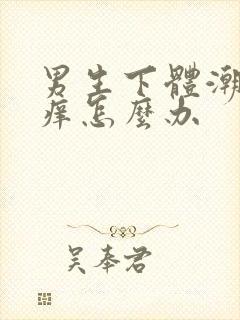 男生下體潮
痒怎麼办
吴奉君